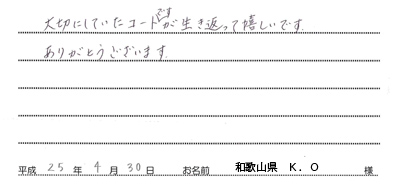 大切にしていたコートですが生き返って嬉しいです。
ありがとうございます
平成 25 年 4 月 30 日 お名前 和歌山県 K.O 様